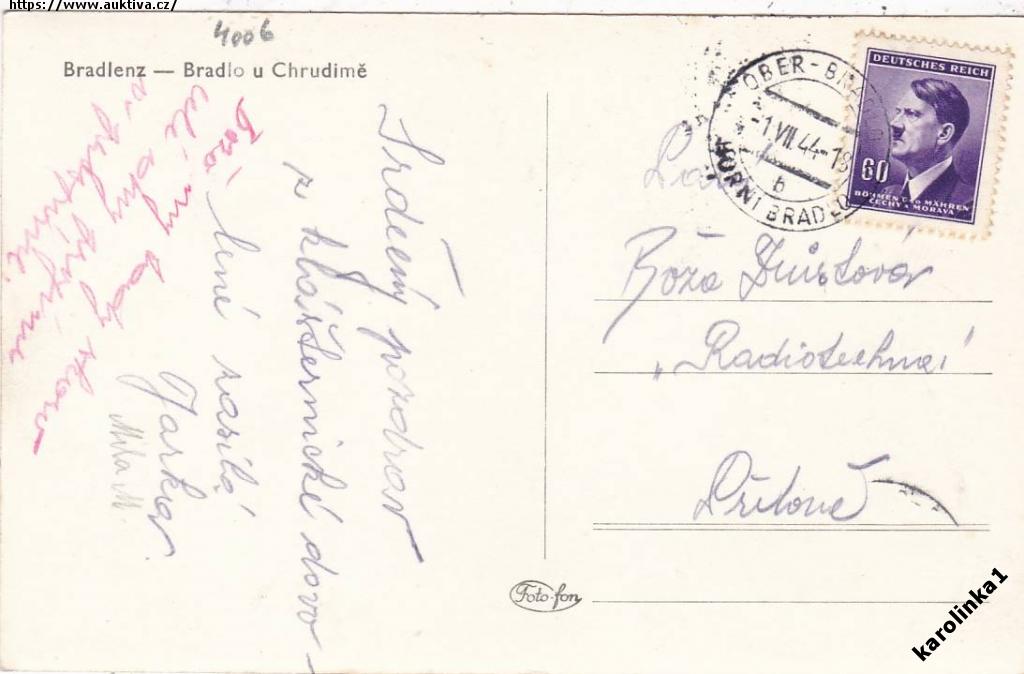 https://www.auktiva.cz/
4006
Bradlenz — Bradlo u Chrudimě
Srdečný pozdrav
z klášternické dovo-
lené zasílá
Jarka
Míla M.
celé dny
tady skoro
OBER-BRADLO
-1.VII.44-18
b
HORNÍ BRADLO
DEUTSCHES REICH
60
BÖHMEN UND MÄHREN
ČECHY A MORAVA
Růža
"Radiotechna"
Foto-fon
karolinka1